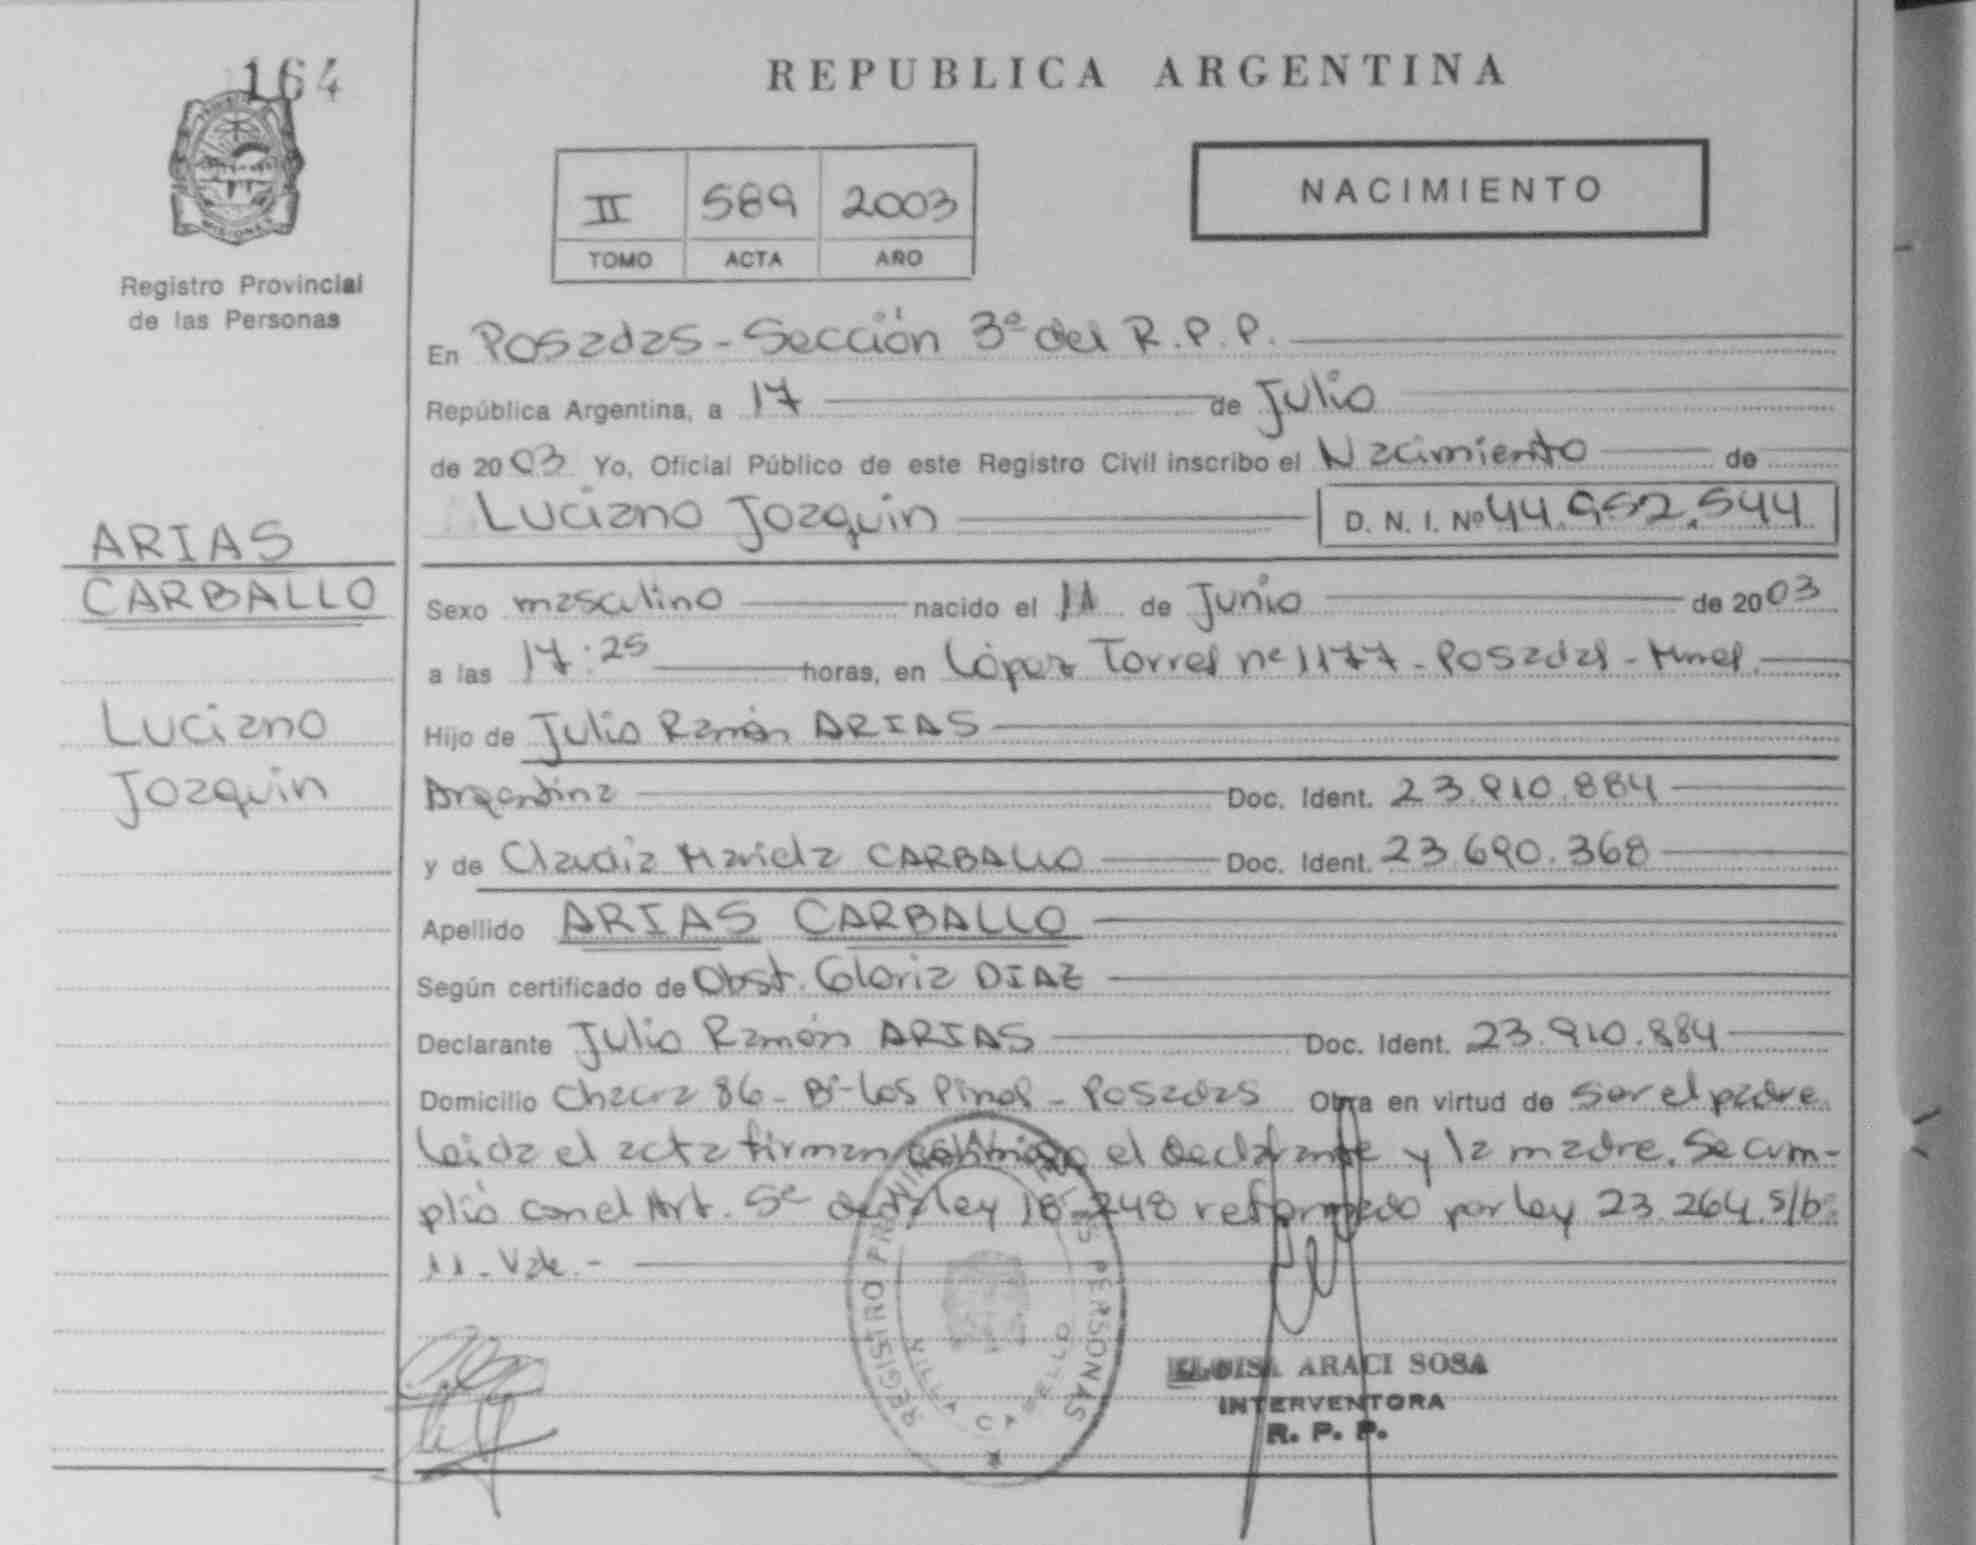 164
REPUBLICA ARGENTINA
II 589 2003
TOMO ACTA AÑO
NACIMIENTO
MISIONES
Registro Provincial
de las Personas
En Posadas - Sección 3º del R.P.P.
República Argentina, a 17 de Julio
de 2003 Yo, Oficial Público de este Registro Civil inscribo el Nacimiento de
Luciano Joaquin D. N. I. Nº 44.952.544
ARIAS
CARBALLO
Luciano
Joaquin
Sexo masculino nacido el 11 de Junio de 2003
a las 17:25 horas, en López Torres nº 1177 - Posadas - Mnes.
Hijo de Julio Ramón ARIAS
Argentina Doc. Ident. 23.910.884
y de Claudia Mariela CARBALLO Doc. Ident. 23.690.368
Apellido ARIAS CARBALLO
Según certificado de Obst. Gloria DIAZ
Declarante Julio Ramón ARIAS Doc. Ident. 23.910.884
Domicilio Chacra 86 - Bº Los Pinos - Posadas Obra en virtud de ser el padre
Leida el acta firman el declarante y la madre. Se cum-
plió con el Art. 5º de la ley 18.248 reformado por ley 23.264. s/bº
11 - Vale.-
REGISTRO PROVINCIAL DE LAS PERSONAS
VILLA CABELLO
ELOISA ARACI SOSA
INTERVENTORA
R. P. P.